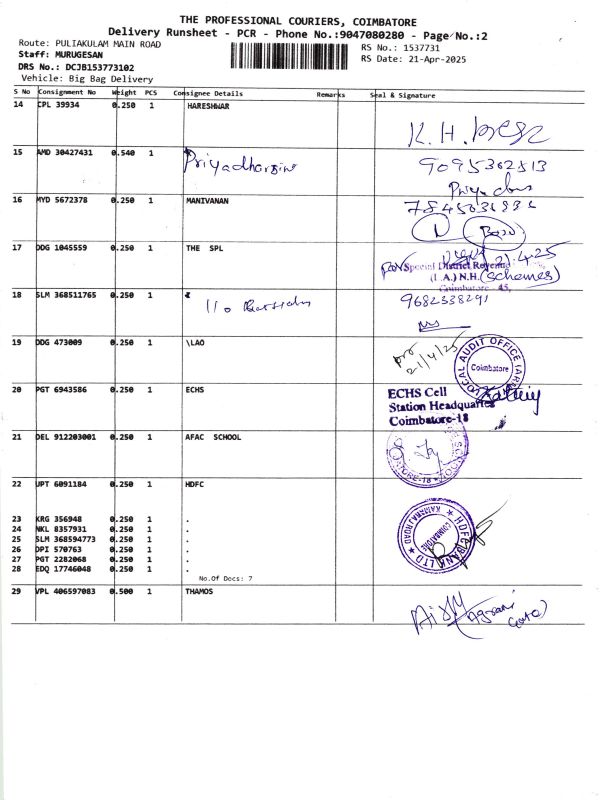 THE PROFESSIONAL COURIERS, COIMBATORE
Delivery Runsheet - PCR - Phone No.:9047080280 - Page No.:2
Route: PULIAKULAM MAIN ROAD
RS No.: 1537731
Staff: MURUGESAN
RS Date: 21-Apr-2025
DRS No.: DCJB153773102
Vehicle: Big Bag Delivery
S No Consignment No Weight PCS Consignee Details Remarks Seal & Signature
14 CPL 39934 0.250 1 HARESHWAR
K.H.
15 AMD 30427431 0.540 1 Priyadharsini
9095362513
Priya
16 MYD 5672378 0.250 1 MANIVANAN
17 DDG 1045559 0.250 1 THE SPL
21.4.25
Special District Revenue
(L.A.) N.H. (Schemes)
Coimbatore - 45,
18 SLM 368511765 0.250 1
9682338291
19 DDG 473009 0.250 1 \LAO
21/4/25
LOCAL AUDIT OFFICE
Coimbatore
20 PGT 6943586 0.250 1 ECHS
ECHS Cell
Station Headquarters
Coimbatore-18
21 DEL 912203001 0.250 1 AFAC SCHOOL
22 UPT 6091184 0.250 1 HDFC
HDFC BANK LTD
KAMARAJ ROAD
COIMBATORE
23 KRG 356948 0.250 1 .
24 NKL 8357931 0.250 1 .
25 SLM 368594773 0.250 1 .
26 DPI 570763 0.250 1 .
27 PGT 2282068 0.250 1 .
28 EDQ 17746048 0.250 1 .
No.Of Docs: 7
29 VPL 406597083 0.500 1 THAMOS